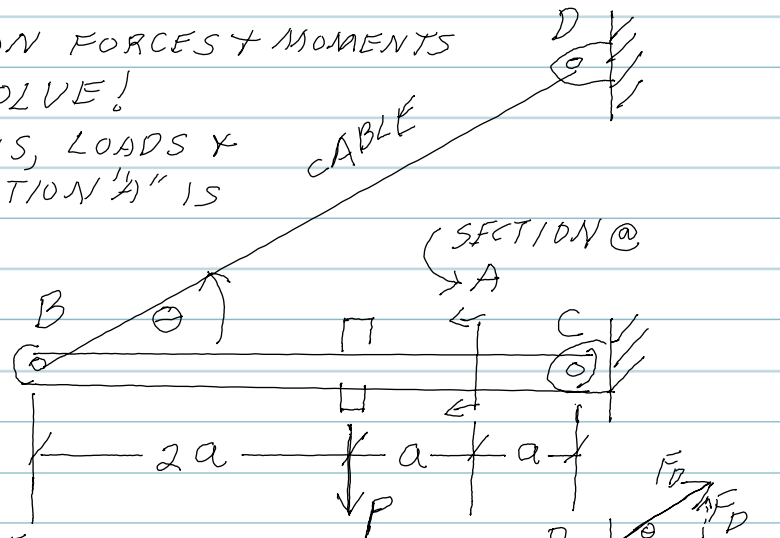 N FORCES + MOMENTS
OLVE!
S, LOADS +
TION "A" IS
D
CABLE
SECTION @
A
B
θ
C
2a
a
a
P
F_D
F_D
θ